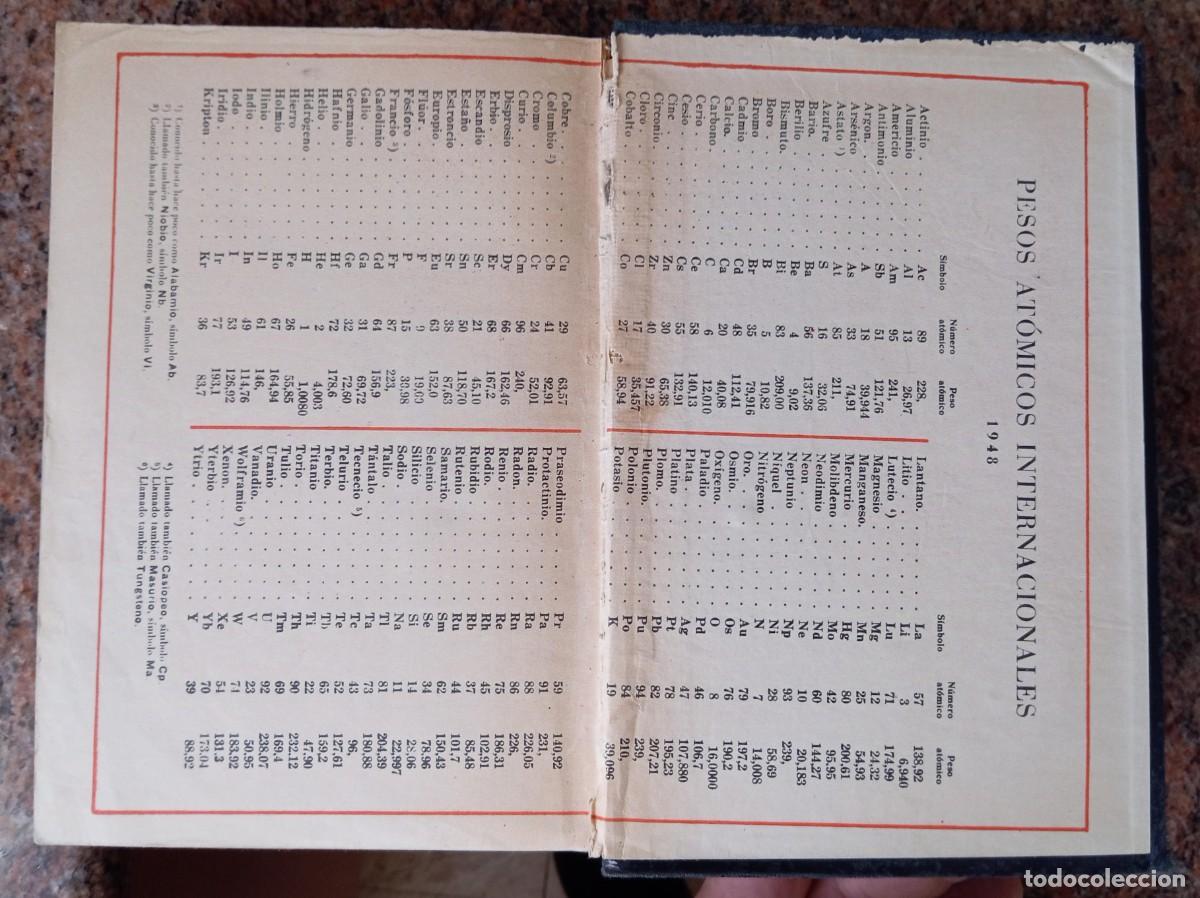 PESOS ATÓMICOS INTERNACIONALES
1948
Símbolo Número atómico Peso atómico Símbolo Número atómico Peso atómico
Actinio . . . . . . Ac 89 228, Lantano. . . . . . La 57 138,92
Aluminio . . . . . . Al 13 26,97 Litio . . . . . . Li 3 6,940
Americio . . . . . . Am 95 241, Lutecio ⁴) . . . . . . Lu 71 174,99
Antimonio . . . . . . Sb 51 121,76 Magnesio . . . . . . Mg 12 24,32
Argon. . . . . . A 18 39,944 Manganeso. . . . . . Mn 25 54,93
Arsénico . . . . . . As 33 74,91 Mercurio . . . . . . Hg 80 200,61
Astato ¹) . . . . . . At 85 211, Molibdeno . . . . . . Mo 42 95,95
Azufre . . . . . . S 16 32,06 Neodimio . . . . . . Nd 60 144,27
Bario. . . . . . Ba 56 137,36 Neon . . . . . . Ne 10 20,183
Berilio . . . . . . Be 4 9,02 Neptunio . . . . . . Np 93 239,
Bismuto. . . . . . Bi 83 209,00 Níquel . . . . . . Ni 28 58,69
Boro . . . . . . B 5 10,82 Nitrógeno . . . . . . N 7 14,008
Bromo . . . . . . Br 35 79,916 Oro. . . . . . Au 79 197,2
Cadmio . . . . . . Cd 48 112,41 Osmio. . . . . . Os 76 190,2
Calcio. . . . . . Ca 20 40,08 Oxígeno . . . . . . O 8 16,0000
Carbono . . . . . . C 6 12,010 Paladio . . . . . . Pd 46 106,7
Cerio . . . . . . Ce 58 140,13 Plata . . . . . . Ag 47 107,880
Cesio . . . . . . Cs 55 132,91 Platino . . . . . . Pt 78 195,23
Cinc . . . . . . Zn 30 65,38 Plomo. . . . . . Pb 82 207,21
Circonio . . . . . . Zr 40 91,22 Plutonio. . . . . . Pu 94 239,
Cloro . . . . . . Cl 17 35,457 Polonio . . . . . . Po 84 210,
Cobalto . . . . . . Co 27 58,94 Potasio . . . . . . K 19 39,096
Cobre. . . . . . Cu 29 63,57 Praseodimio . . . . . . Pr 59 140,92
Columbio ²) . . . . . . Cb 41 92,91 Protactinio. . . . . . Pa 91 231,
Cromo . . . . . . Cr 24 52,01 Radio. . . . . . Ra 88 226,05
Curio . . . . . . Cm 96 240, Radon. . . . . . Rn 86 226,
Disprosio . . . . . . Dy 66 162,46 Renio . . . . . . Re 75 186,31
Erbio . . . . . . Er 68 167,2 Rodio. . . . . . Rh 45 102,91
Escandio . . . . . . Sc 21 45,10 Rubidio . . . . . . Rb 37 85,48
Estaño . . . . . . Sn 50 118,70 Rutenio . . . . . . Ru 44 101,7
Estroncio . . . . . . Sr 38 87,63 Samario. . . . . . Sm 62 150,43
Europio. . . . . . Eu 63 152,0 Selenio . . . . . . Se 34 78,96
Flúor . . . . . . F 9 19,00 Silicio . . . . . . Si 14 28,06
Fósforo . . . . . . P 15 30,98 Sodio . . . . . . Na 11 22,997
Francio ³) . . . . . . Fr 87 223, Talio . . . . . . Tl 81 204,39
Gadolinio . . . . . . Gd 64 156,9 Tántalo. . . . . . Ta 73 180,88
Galio . . . . . . Ga 31 69,72 Tecnecio ⁵) . . . . . . Tc 43 96,
Germanio . . . . . . Ge 32 72,60 Telurio . . . . . . Te 52 127,61
Hafnio . . . . . . Hf 72 178,6 Terbio. . . . . . Tb 65 159,2
Helio . . . . . . He 2 4,003 Titanio . . . . . . Ti 22 47,90
Hidrógeno . . . . . . H 1 1,0080 Torio . . . . . . Th 90 232,12
Hierro . . . . . . Fe 26 55,85 Tulio . . . . . . Tm 69 169,4
Holmio . . . . . . Ho 67 164,94 Uranio . . . . . . U 92 238,07
Ilinio . . . . . . Il 61 146, Vanadio. . . . . . V 23 50,95
Indio . . . . . . In 49 114,76 Wolframio ⁶) . . . . . . W 74 183,92
Iodo . . . . . . I 53 126,92 Xenon. . . . . . Xe 54 131,3
Iridio . . . . . . Ir 77 193,1 Yterbio . . . . . . Yb 70 173,04
Kripton . . . . . . Kr 36 83,7 Ytrio . . . . . . Y 39 88,92
¹) Conocido hasta hace poco como Alabamio, símbolo Ab.
²) Llamado también Niobio, símbolo Nb.
³) Conocido hasta hace poco como Virginio, símbolo Vi.
⁴) Llamado también Casiopeo, símbolo Cp.
⁵) Llamado también Masurio, símbolo Ma
⁶) Llamado también Tungsteno.
todocoleccion